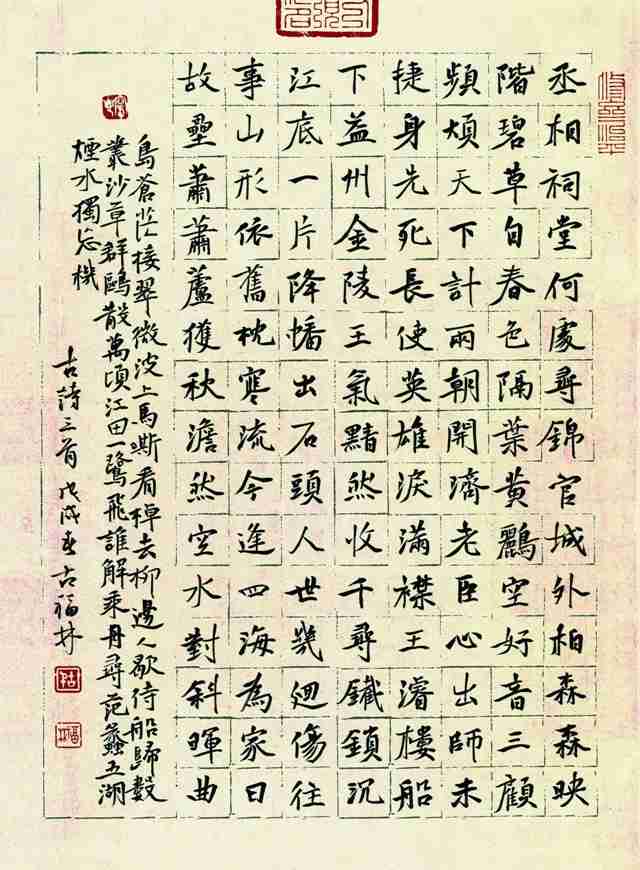 丞相祠堂何處尋錦官城外柏森森映
階碧草自春色隔葉黃鸝空好音三顧
頻煩天下計兩朝開濟老臣心出師未
捷身先死長使英雄淚滿襟王濬樓船
下益州金陵王氣黯然收千尋鐵鎖沉
江底一片降幡出石頭人世幾迴傷往
事山形依舊枕寒流今逢四海為家日
故壘蕭蕭蘆獲秋澹然空水對斜暉曲
島蒼茫接翠微波上馬嘶看棹去柳邊人歇待船歸數
叢沙草群鷗散萬頃江田一鷺飛誰解乘舟尋范蠡五湖
煙水獨忘機
古詩三首戊戌春古福林